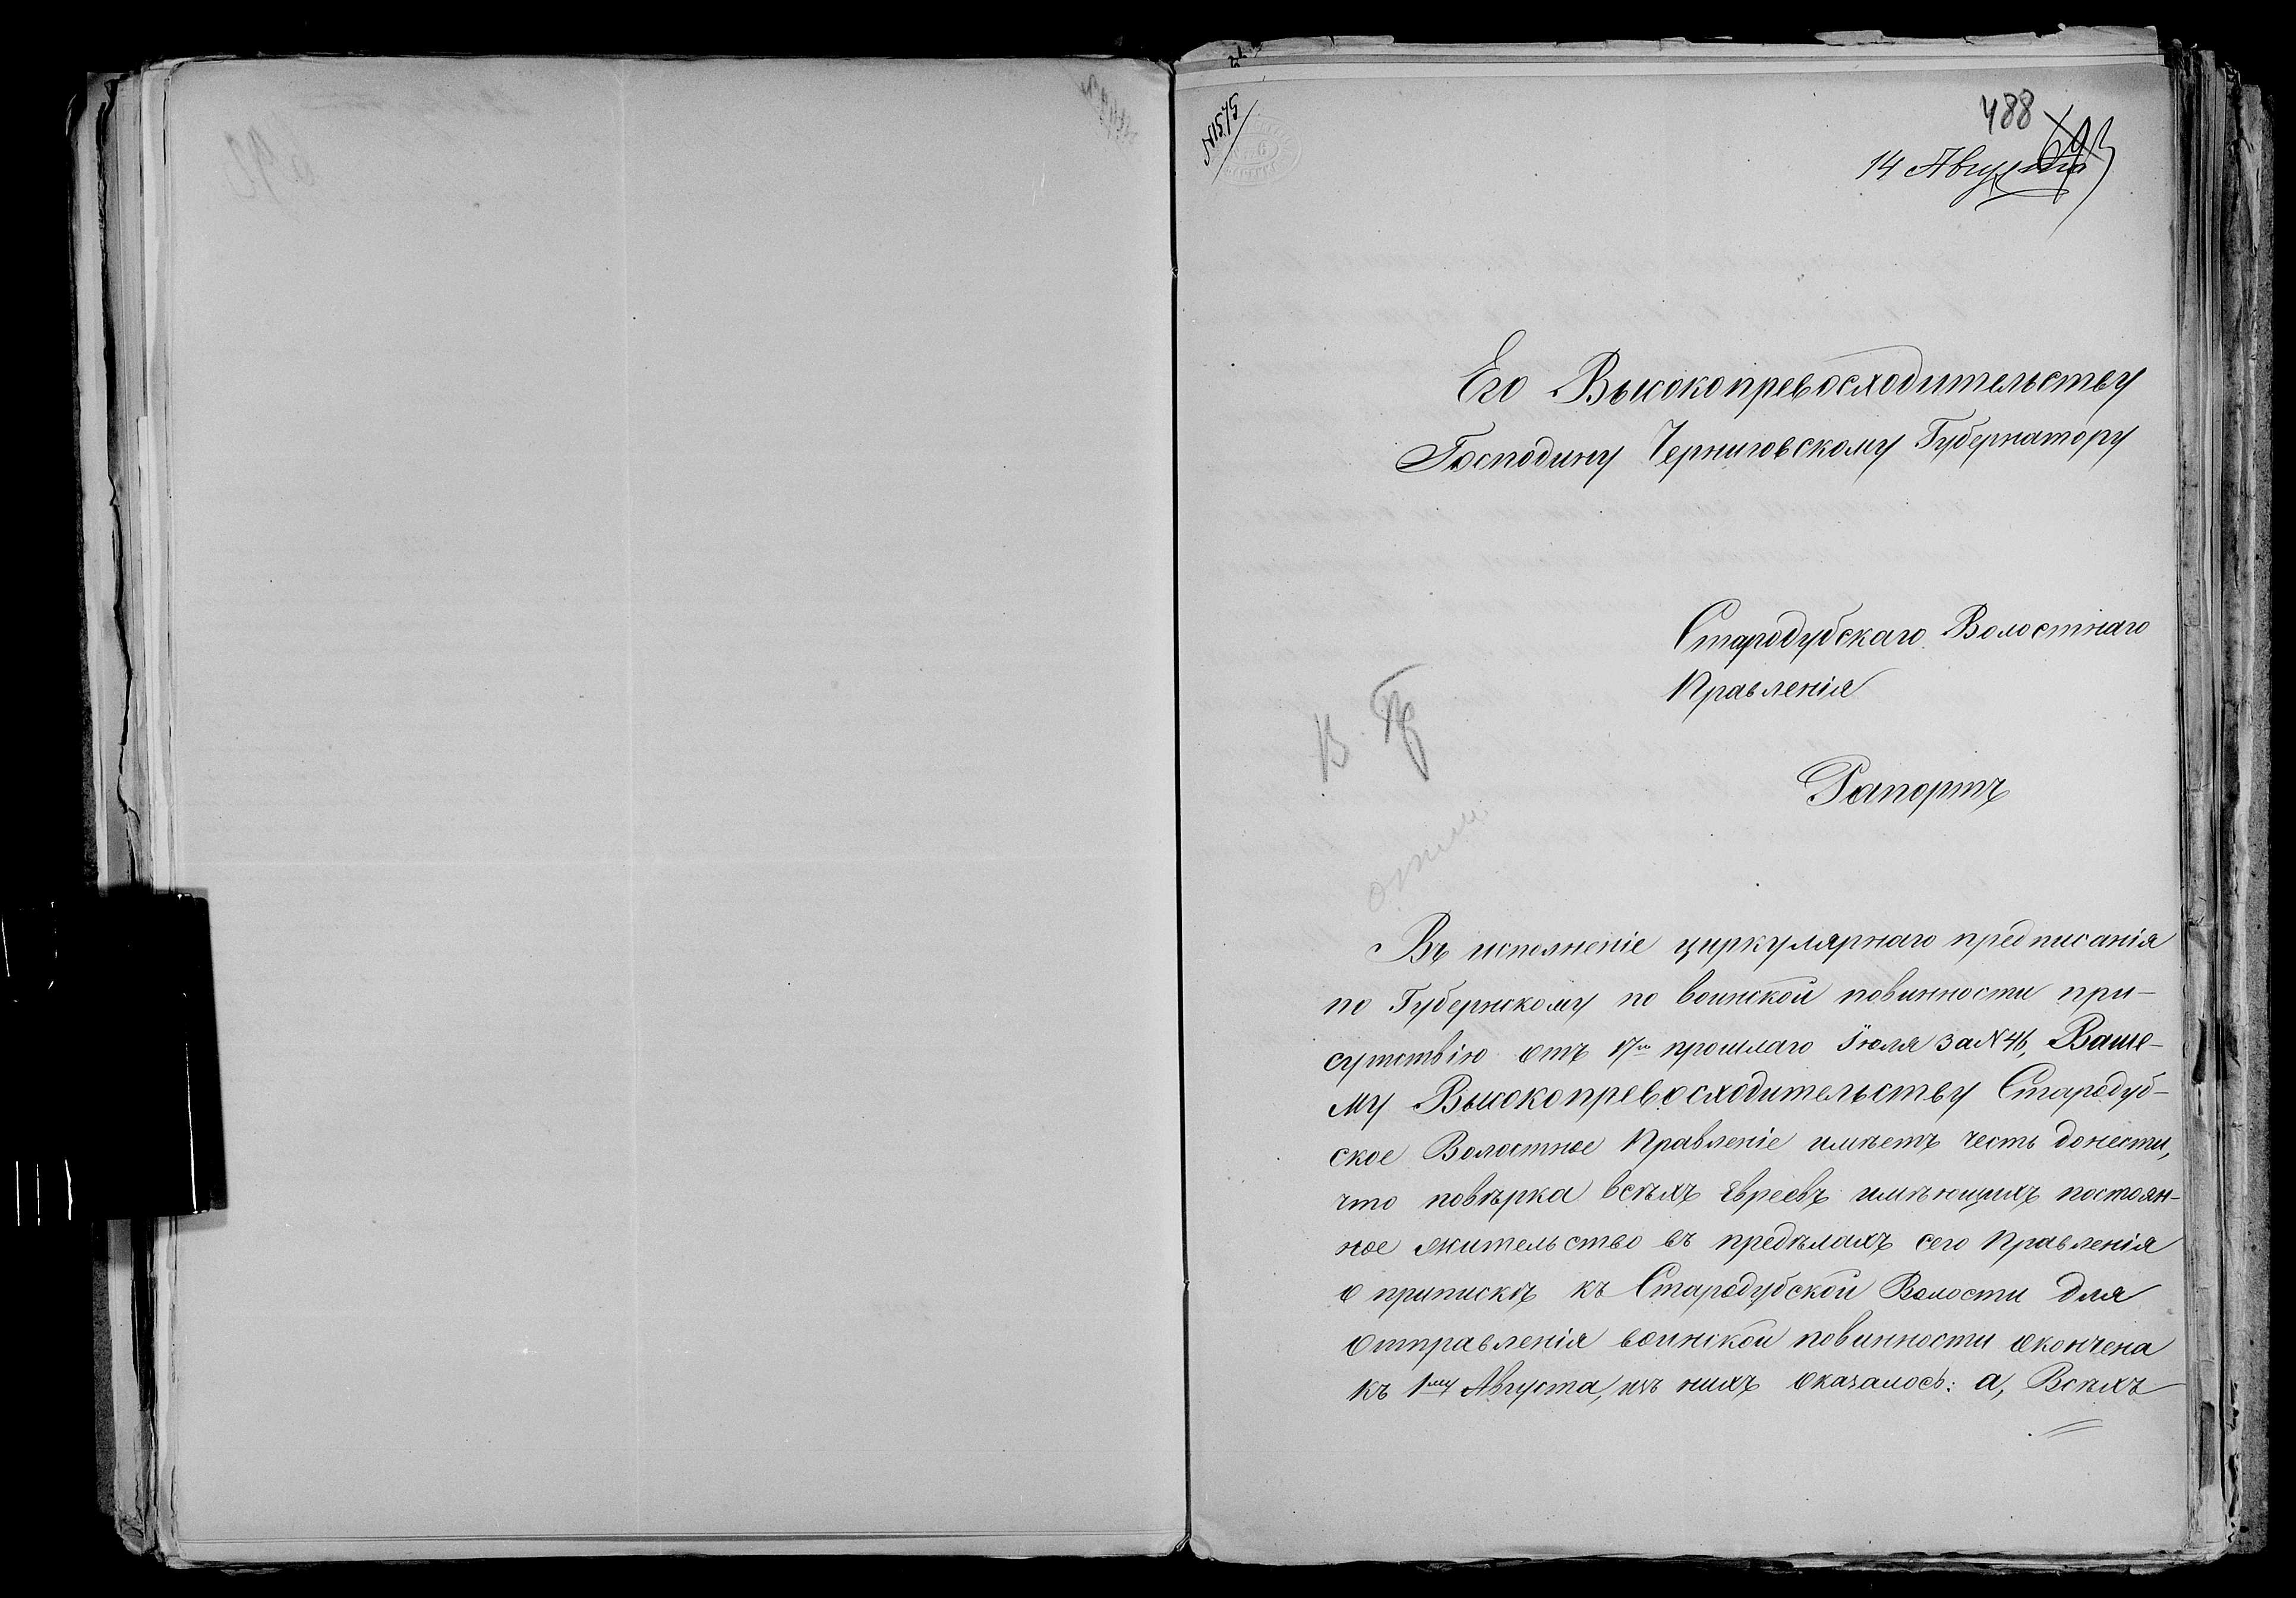 N 1575
488
693
14 Августа
Его Высокопревосходительству
Господину Черниговскому Губернатору
Стародубскаго Волостнаго
Правленія
Рапортъ
Въ исполненіе циркулярнаго предписанія
по Губернскому по воинской повинности при-
сутствію отъ 17го прошлаго Іюля за N 46, Ваше-
му Высокопревосходительству Стародуб-
ское Волостное Правленіе имѣетъ честь донести,
что повѣрка всѣхъ Евреевъ имѣющихъ постоян-
ное жительство въ предѣлахъ сего Правленія
о припискѣ къ Стародубской Волости для
отправленія воинской повинности окончена
къ 1му Августа, изъ нихъ оказалось: а, Всѣхъ